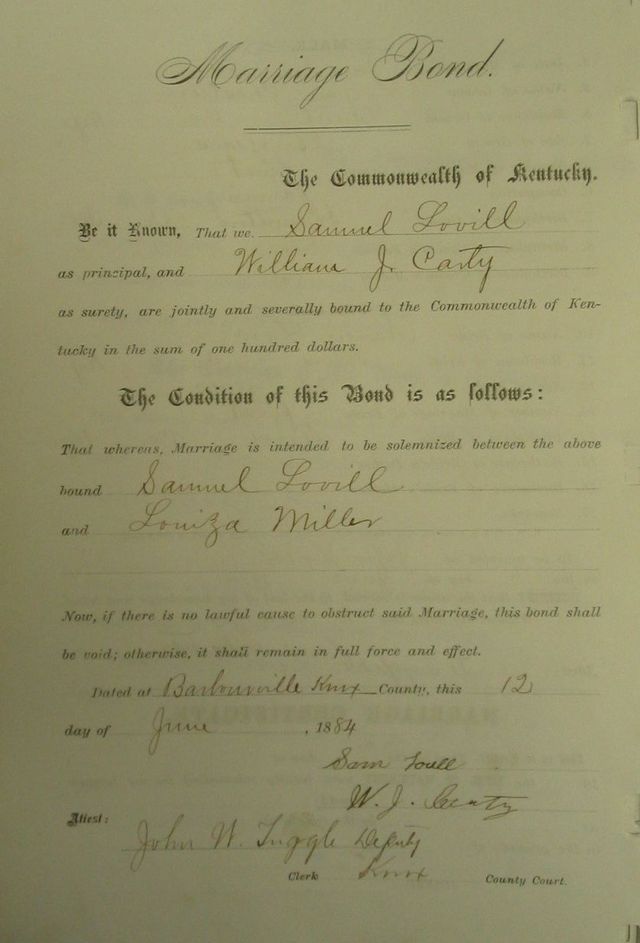 Marriage Bond.
The Commonwealth of Kentucky.
Be it Known, That we Samuel Lovill
as principal, and William J. Carty
as surety, are jointly and severally bound to the Commonwealth of Ken-
tucky in the sum of one hundred dollars.
The Condition of this Bond is as follows:
That whereas, Marriage is intended to be solemnized between the above
bound Samuel Lovill
and Louiza Miller
Now, if there is no lawful cause to obstruct said Marriage, this bond shall
be void; otherwise, it shall remain in full force and effect.
Dated at Barbourville Knox County, this 12
day of June, 1884
Sam
W. J. Carty
Attest:
John W. Tuggle Deputy
Clerk Knox County Court.